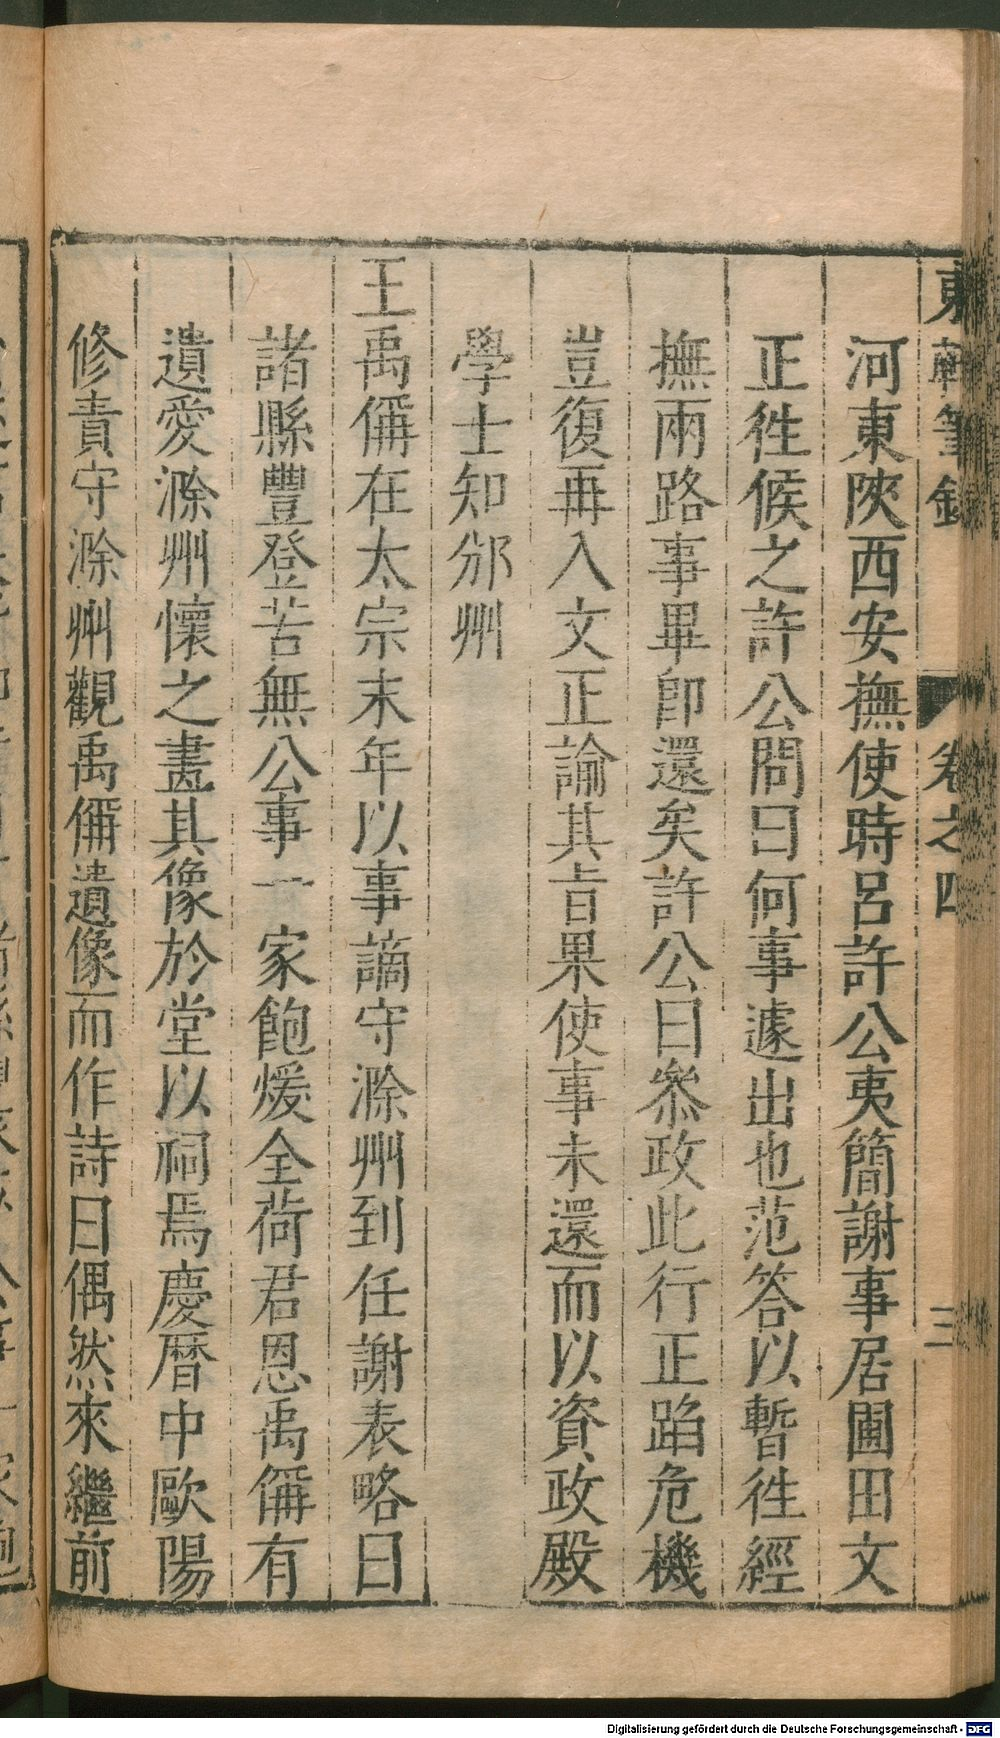 東軒筆錄 卷之四 三
河東陝西安撫使時呂許公夷簡謝事居圃田文
正徃候之許公問曰何事遽出也范答以暫徃經
撫兩路事畢卽還矣許公曰叅政此行正蹈危機
豈復再入文正諭其㫖果使事未還而以資政殿
學士知邠州
王禹偁在太宗末年以事謫守滁州到任謝表略曰
諸縣豐登苦無公事一家飽煖全荷君恩禹偁有
遺愛滁州懷之畫其像於堂以祠焉慶曆中歐陽
修責守滁州觀禹偁遺像而作詩曰偶然來繼前
Digitalisierung gefördert durch die Deutsche Forschungsgemeinschaft - DFG